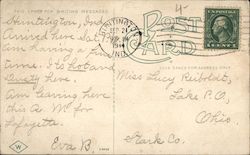 THIS SPACE FOR WRITING MESSAGES
POST
CARD
Huntington, Ind.
Arrived here Sat.
Am having a fine
time. Is to hot and
Dusty here.
Am leaving here
this A.M. for
Lafayette.
Eva B.
HUNTINGTON
SEP 21
IND.
Miss Lucy Reiboldt,
Lake P.O.
Ohio.
Stark Co.
W